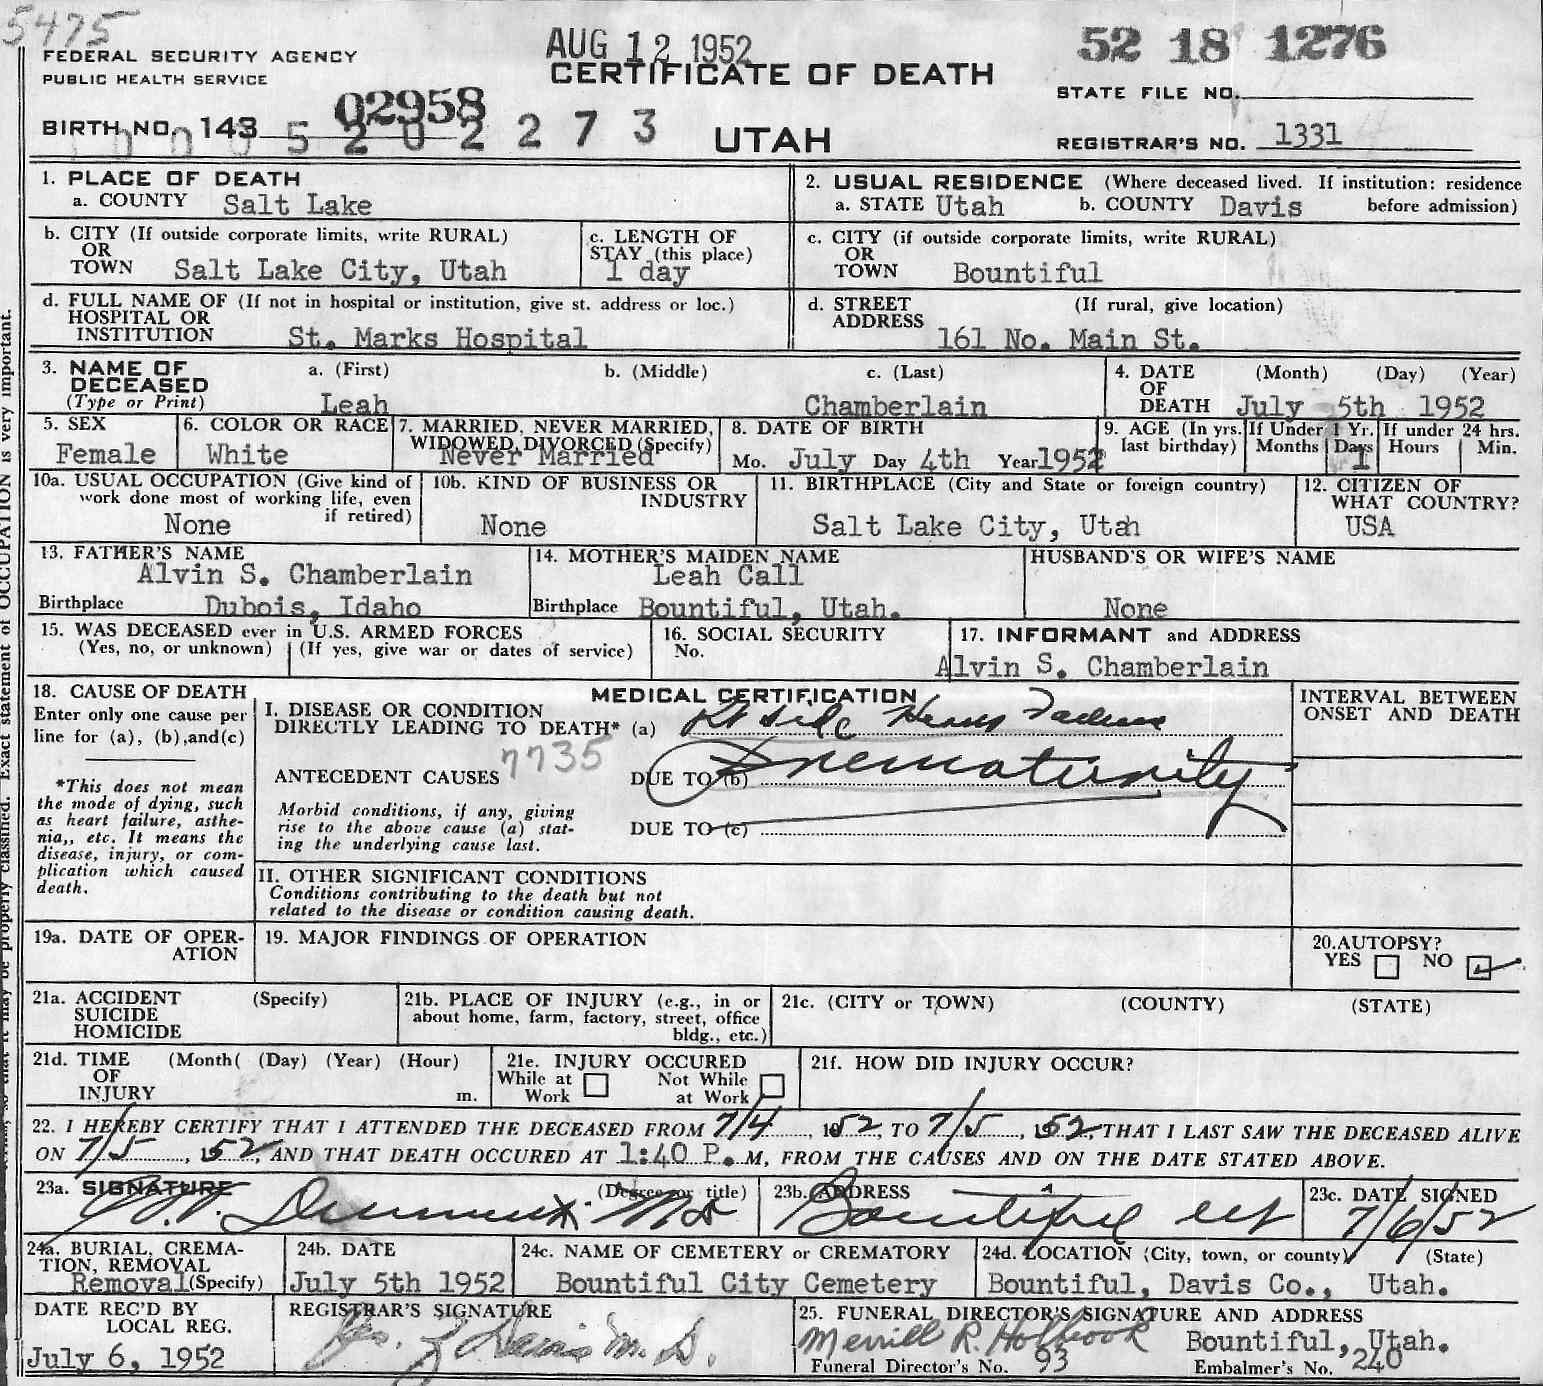 5475
AUG 12 1952
52 18 1276
FEDERAL SECURITY AGENCY
PUBLIC HEALTH SERVICE
CERTIFICATE OF DEATH
STATE FILE NO.
02958
BIRTH NO. 143
5 2 0 2 2 7 3
UTAH
REGISTRAR'S NO. 1331
1. PLACE OF DEATH
a. COUNTY Salt Lake
2. USUAL RESIDENCE (Where deceased lived. If institution: residence
a. STATE Utah b. COUNTY Davis before admission)
b. CITY (If outside corporate limits, write RURAL)
OR
TOWN Salt Lake City, Utah
c. LENGTH OF
STAY (this place)
1 day
c. CITY (if outside corporate limits, write RURAL)
OR
TOWN Bountiful
d. FULL NAME OF (If not in hospital or institution, give st. address or loc.)
HOSPITAL OR
INSTITUTION St. Marks Hospital
d. STREET (If rural, give location)
ADDRESS 161 No. Main St.
3. NAME OF a. (First) b. (Middle) c. (Last)
DECEASED
(Type or Print) Leah Chamberlain
4. DATE (Month) (Day) (Year)
OF
DEATH July 5th 1952
5. SEX
Female
6. COLOR OR RACE
White
7. MARRIED, NEVER MARRIED,
WIDOWED, DIVORCED (Specify)
Never Married
8. DATE OF BIRTH
Mo. July Day 4th Year 1952
9. AGE (In yrs.
last birthday)
If Under 1 Yr.
Months Days
1
If under 24 hrs.
Hours Min.
10a. USUAL OCCUPATION (Give kind of
work done most of working life, even
if retired)
None
10b. KIND OF BUSINESS OR
INDUSTRY
None
11. BIRTHPLACE (City and State or foreign country)
Salt Lake City, Utah
12. CITIZEN OF
WHAT COUNTRY?
USA
13. FATHER'S NAME
Alvin S. Chamberlain
Birthplace Dubois, Idaho
14. MOTHER'S MAIDEN NAME
Leah Call
Birthplace Bountiful, Utah.
HUSBAND'S OR WIFE'S NAME
None
15. WAS DECEASED ever in U.S. ARMED FORCES
(Yes, no, or unknown) (If yes, give war or dates of service)
16. SOCIAL SECURITY
No.
17. INFORMANT and ADDRESS
Alvin S. Chamberlain
18. CAUSE OF DEATH
Enter only one cause per
line for (a), (b), and (c)
*This does not mean
the mode of dying, such
as heart failure, asthe-
nia,, etc. It means the
disease, injury, or com-
plication which caused
death.
MEDICAL CERTIFICATION
I. DISEASE OR CONDITION
DIRECTLY LEADING TO DEATH* (a) Rt side Heart
7735
ANTECEDENT CAUSES DUE TO (b) Prematurity
Morbid conditions, if any, giving
rise to the above cause (a) stat-
ing the underlying cause last.
DUE TO (c)
INTERVAL BETWEEN
ONSET AND DEATH
II. OTHER SIGNIFICANT CONDITIONS
Conditions contributing to the death but not
related to the disease or condition causing death.
19a. DATE OF OPER-
ATION
19. MAJOR FINDINGS OF OPERATION
20. AUTOPSY?
YES NO
21a. ACCIDENT (Specify)
SUICIDE
HOMICIDE
21b. PLACE OF INJURY (e.g., in or
about home, farm, factory, street, office
bldg., etc.)
21c. (CITY or TOWN) (COUNTY) (STATE)
21d. TIME (Month( (Day) (Year) (Hour)
OF
INJURY m.
21e. INJURY OCCURED
While at Not While
Work at Work
21f. HOW DID INJURY OCCUR?
22. I HEREBY CERTIFY THAT I ATTENDED THE DECEASED FROM 7/4, 1952, TO 7/5, 1952, THAT I LAST SAW THE DECEASED ALIVE
ON 7/5, 1952, AND THAT DEATH OCCURED AT 1:40 P. M, FROM THE CAUSES AND ON THE DATE STATED ABOVE.
23a. SIGNATURE (Degree or title)
MD
23b. ADDRESS
Bountiful Ut
23c. DATE SIGNED
7/6/52
24a. BURIAL, CREMA-
TION, REMOVAL
Removal (Specify)
24b. DATE
July 5th 1952
24c. NAME OF CEMETERY or CREMATORY
Bountiful City Cemetery
24d. LOCATION (City, town, or county) (State)
Bountiful, Davis Co., Utah.
DATE REC'D BY
LOCAL REG.
July 6, 1952
REGISTRAR'S SIGNATURE
M. D.
25. FUNERAL DIRECTOR'S SIGNATURE AND ADDRESS
Merrill R. Holbrook Bountiful, Utah.
Funeral Director's No. 93 Embalmer's No. 240
properly classified. Exact statement of OCCUPATION is very important.